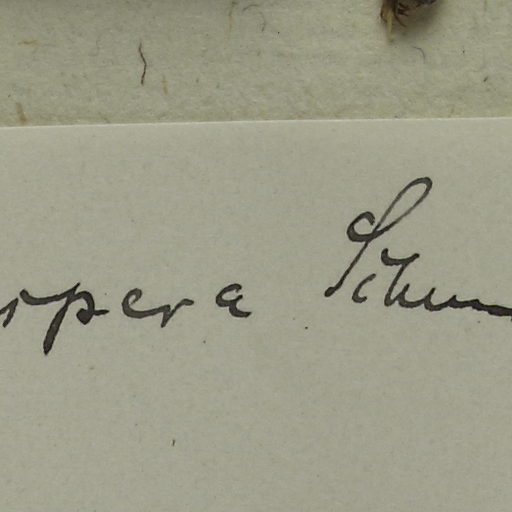 spera Schum